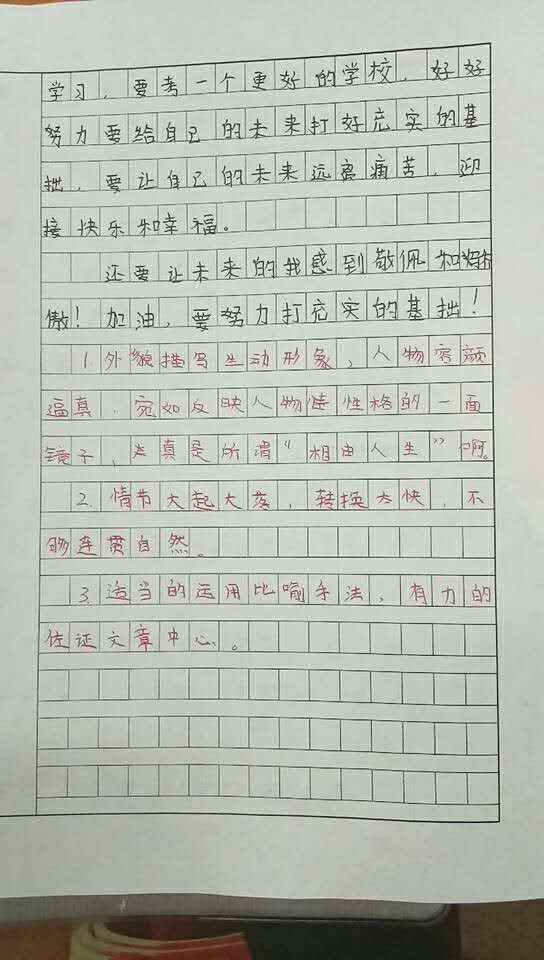 学习，要考一个更好的学校，好好
努力要给自己的未来打好充实的基
拙，要让自己的未来远离痛苦，迎
接快乐和幸福。
还要让未来的我感到敬佩和骄
傲！加油，要努力打充实的基拙！
1.外貌描写生动形象，人物容颜
逼真，宛如反映人物性格的一面
镜子，真是所谓“相由人生”啊。
2.情节大起大落，转换太快，不
够连贯自然。
3.适当的运用比喻手法，有力的
佐证文章中心。